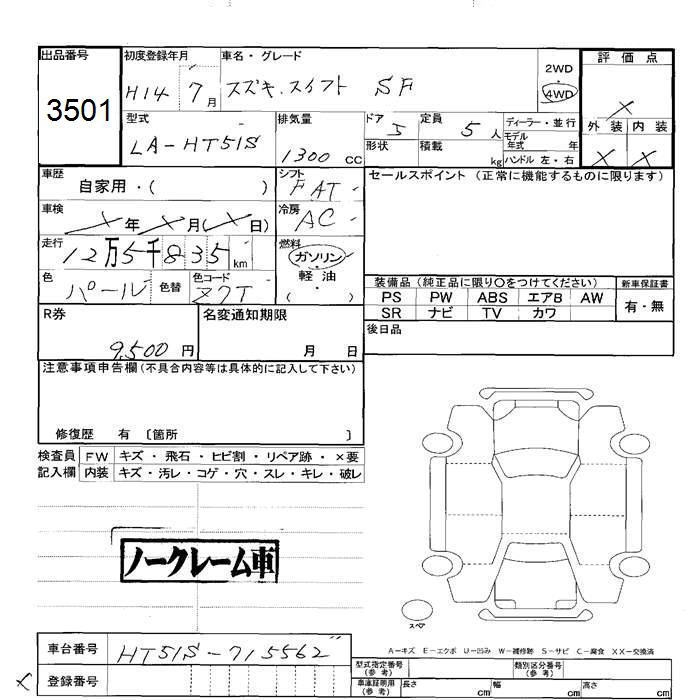 出品番号
3501
初度登録年月
H14 7月
車名・グレード
スズキ.スイフト SF
2WD
4WD
評価点
×
外装 内装
× ×
型式
LA-HT51S
排気量
1300 cc
ドア 5
形状
定員 5人
積載 kg
ディーラー・並行
モデル年式 年
ハンドル 左・右
車歴
自家用・( )
シフト
FAT
セールスポイント (正常に機能するものに限ります)
車検
×年 ×月(×日)
冷房
AC
走行
12万5千835km
燃料
ガソリン・
軽油・
( )
色
パール
色替
色コード
Z7T
装備品 (純正品に限り○をつけてください)
新車保証書
PS PW ABS エアB AW
SR ナビ TV カワ
有・無
R券
9,500円
名変通知期限
月 日
後日品
注意事項申告欄(不具合内容等は具体的に記入して下さい)
修復歴 有 〔箇所 〕
検査員 FW キズ・飛石・ヒビ割・リペア跡・×要
記入欄 内装 キズ・汚レ・コゲ・穴・スレ・キレ・破レ
ノークレーム車
スペア
A-キズ E-エクボ U-凹み W-補修跡 S-サビ C-腐食 XX-交換済
車台番号
HT51S-715562
× 登録番号
型式指定番号(参考)
類別区分番号(参考)
車庫証明用(参考) 長さ cm 幅 cm 高さ cm